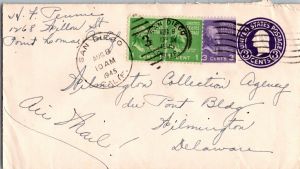 H. F. Pennie
1768 Willow St
Point Loma
SAN DIEGO
AUG 8
10 AM
1945
CALIF.
SAN DIEGO
1 CENT
3 CENTS
UNITED STATES POSTAGE
Wilmington Collection Agency
du Pont Bldg
Wilmington
Delaware
Air Mail!